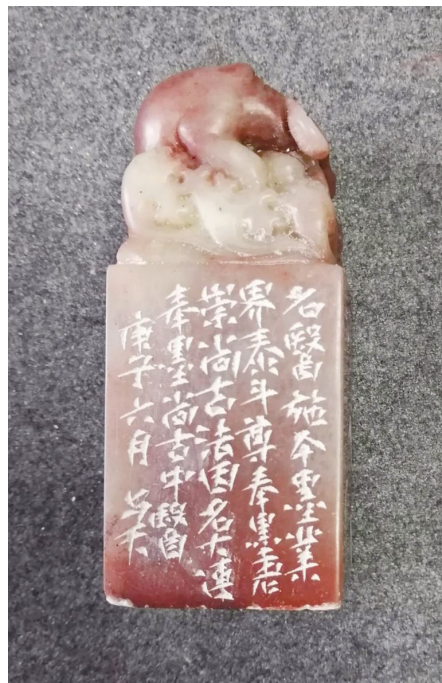 名醫施今墨業
界泰斗尊奉墨者
崇尚古法因名大連
奉墨尚古中醫
庚子六月